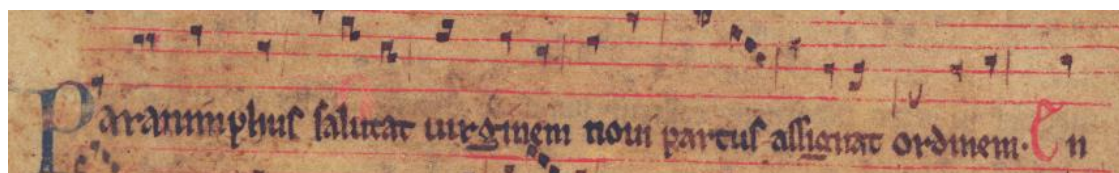 Paranimphus salutat uirginem noui partus assignat ordinem. En